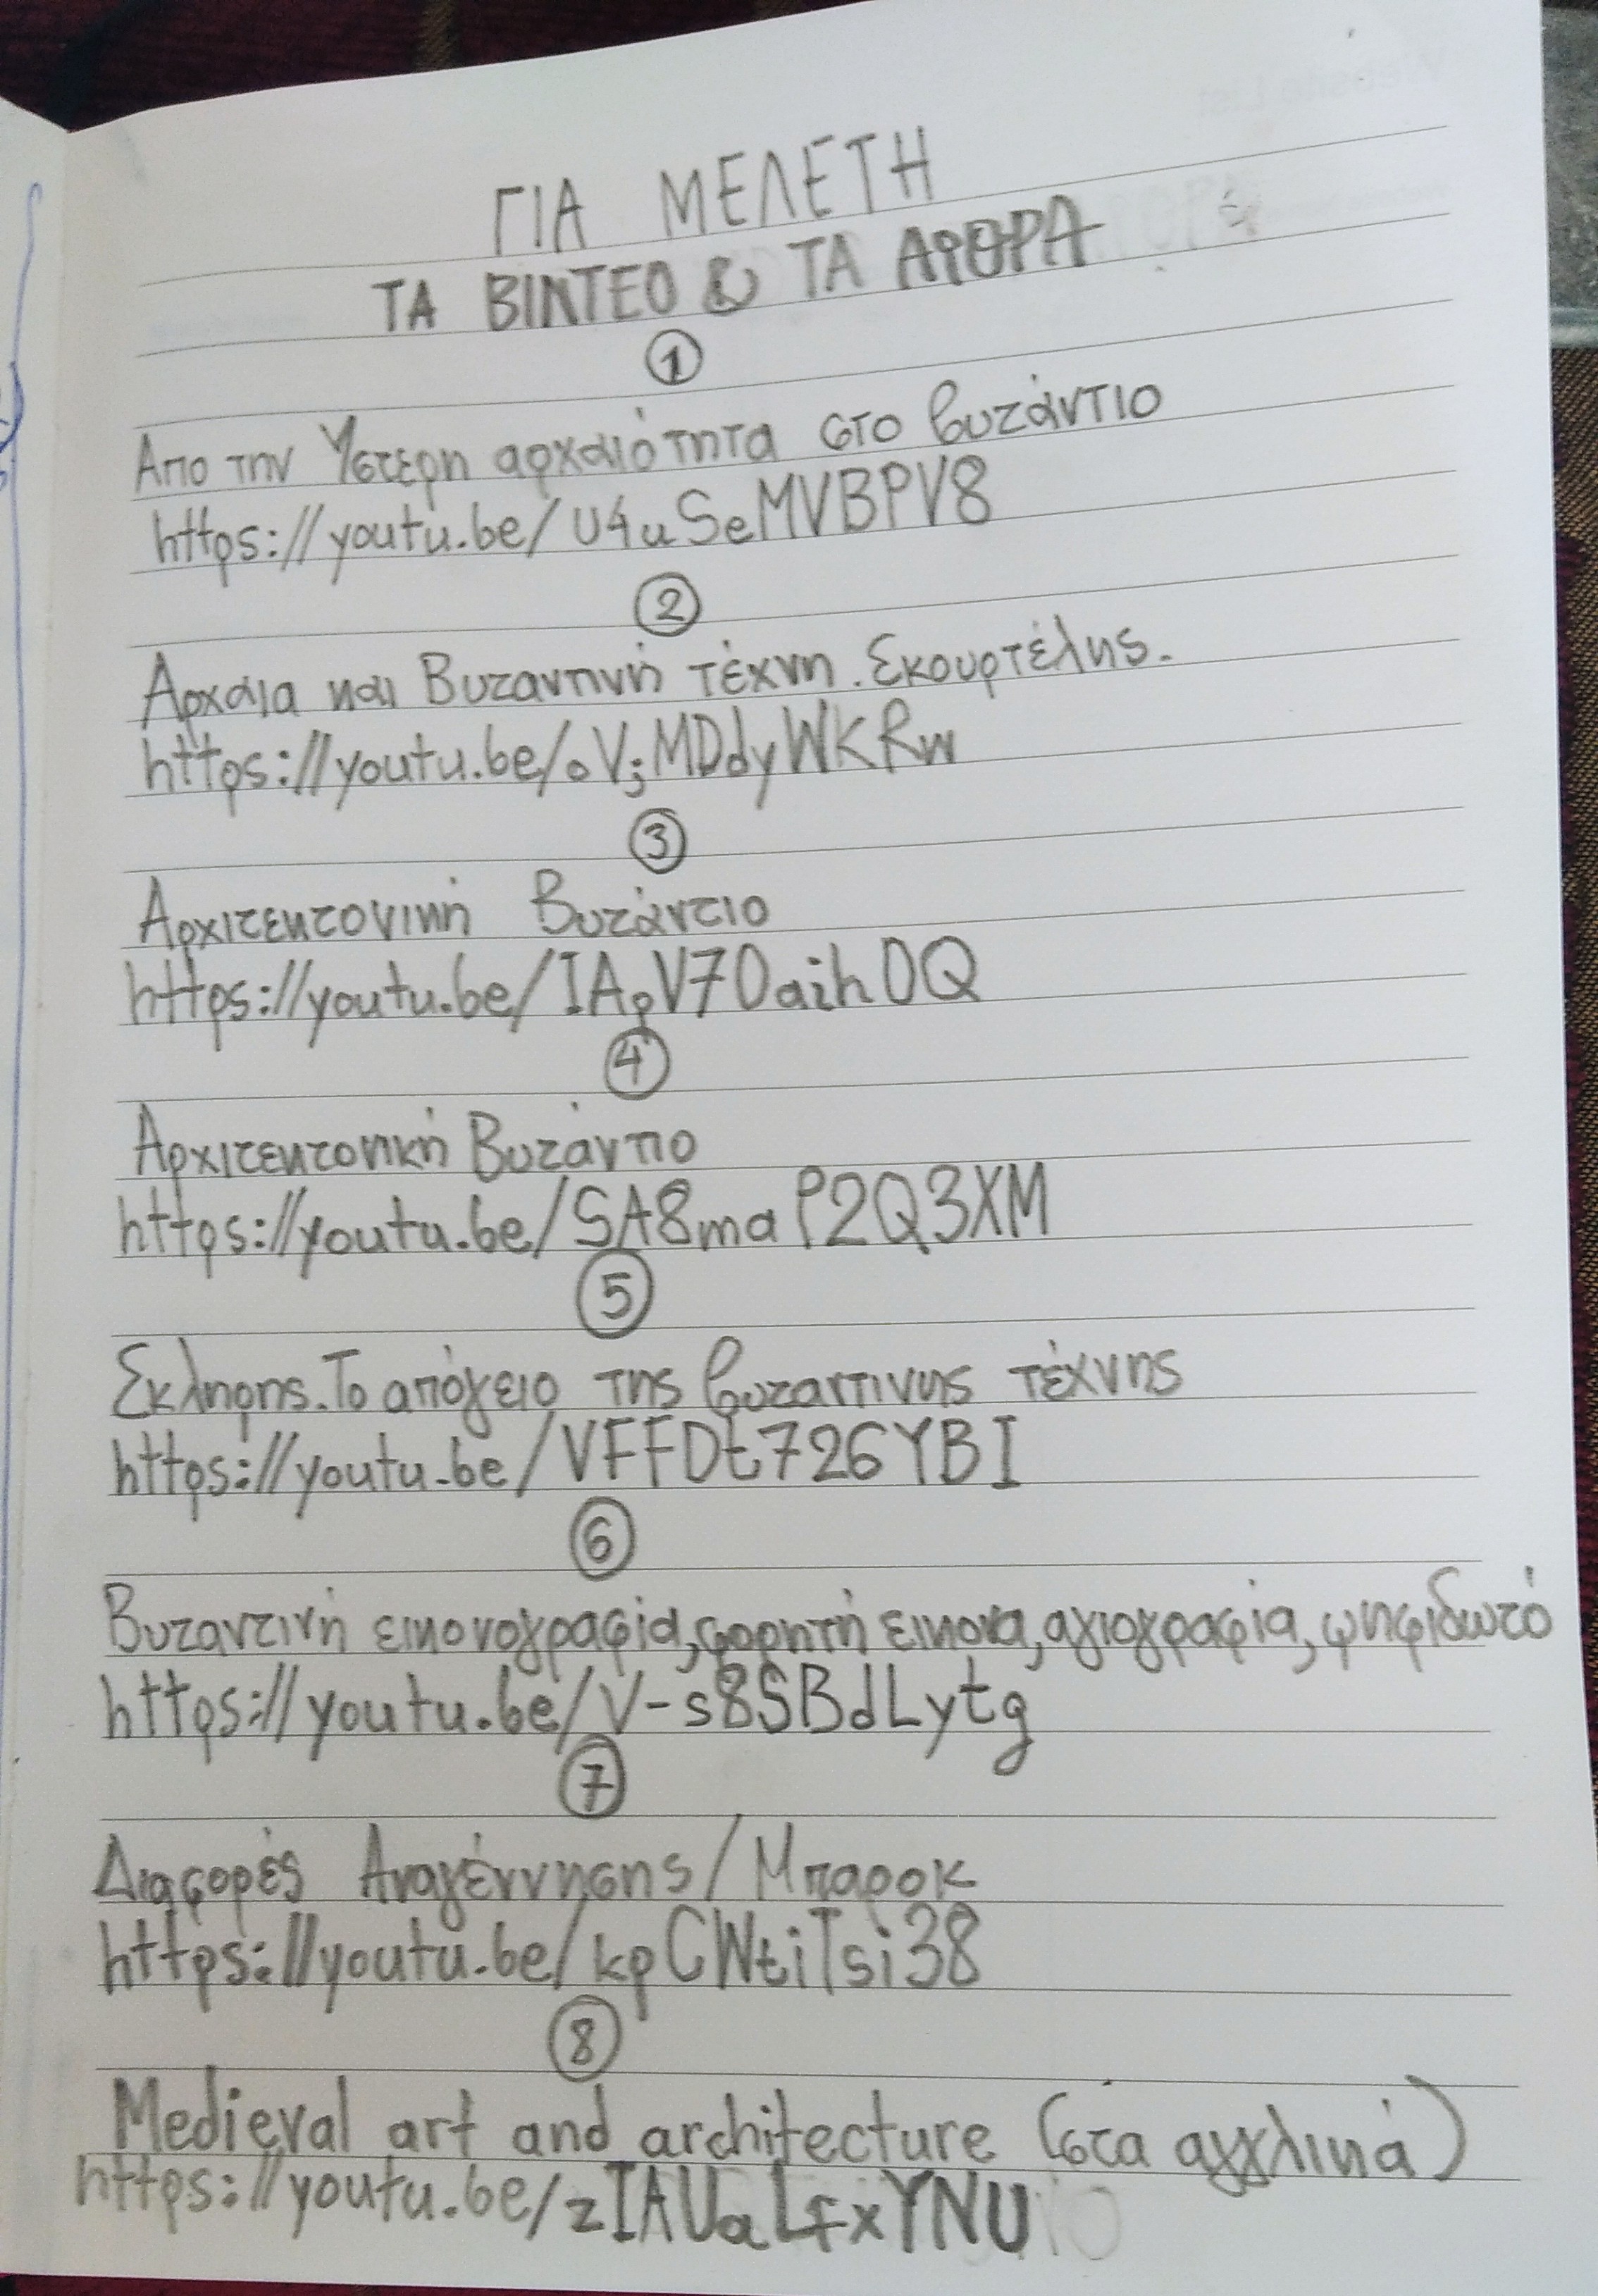 ΓΙΑ ΜΕΛΕΤΗ
ΤΑ ΒΙΝΤΕΟ & ΤΑ ΑΡΘΡΑ
1
Απο την Υστερη αρχαιότητα στο βυζάντιο
https://youtu.be/U4uSeMVBPV8
2
Αρχαια και Βυζαντινή τέχνη. Σκουρτέλης.
https://youtu.be/oVjMDdyWKRw
3
Αρχιτεκτονική Βυζάντιο
https://youtu.be/IApV7OaihOQ
4
Αρχιτεκτονική Βυζάντιο
https://youtu.be/SA8maP2Q3XM
5
Σκληρης. Το απόγειο της βυζαντινης τέχνης
https://youtu.be/VFFDt726YBI
6
Βυζαντινή εικονογραφία, φορητή εικονα, αγιογραφία, ψηφιδωτό
https://youtu.be/V-s8SBdLytg
7
Διαφορές Αναγέννησης/Μπαροκ
https://youtu.be/kpCWtiTsi38
8
Medieval art and architecture (στα αγγλικά)
https://youtu.be/zIAUaLfxYNU